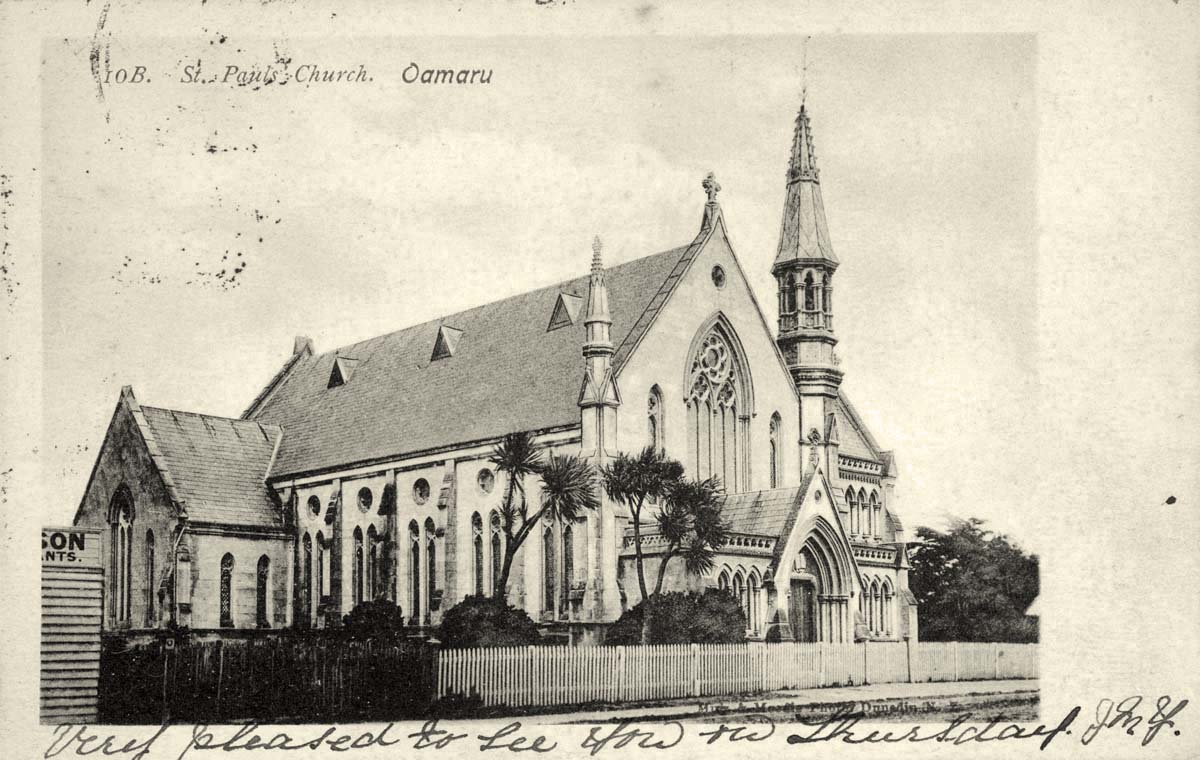 10B. St. Pauls Church. Oamaru
SON
NTS.
Muir & Moodie Photo Dunedin, N.Z.
Very pleased to see You on Thursday. J.M.Y.